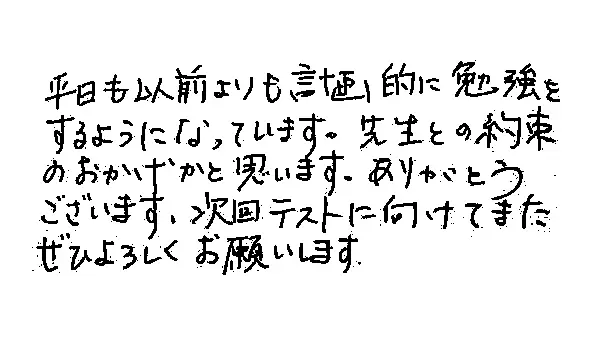 平日も以前よりも計画的に勉強を
するようになっています。先生との約束
のおかげかと思います。ありがとう
ございます、次回テストに向けてまた
ぜひよろしくお願いします